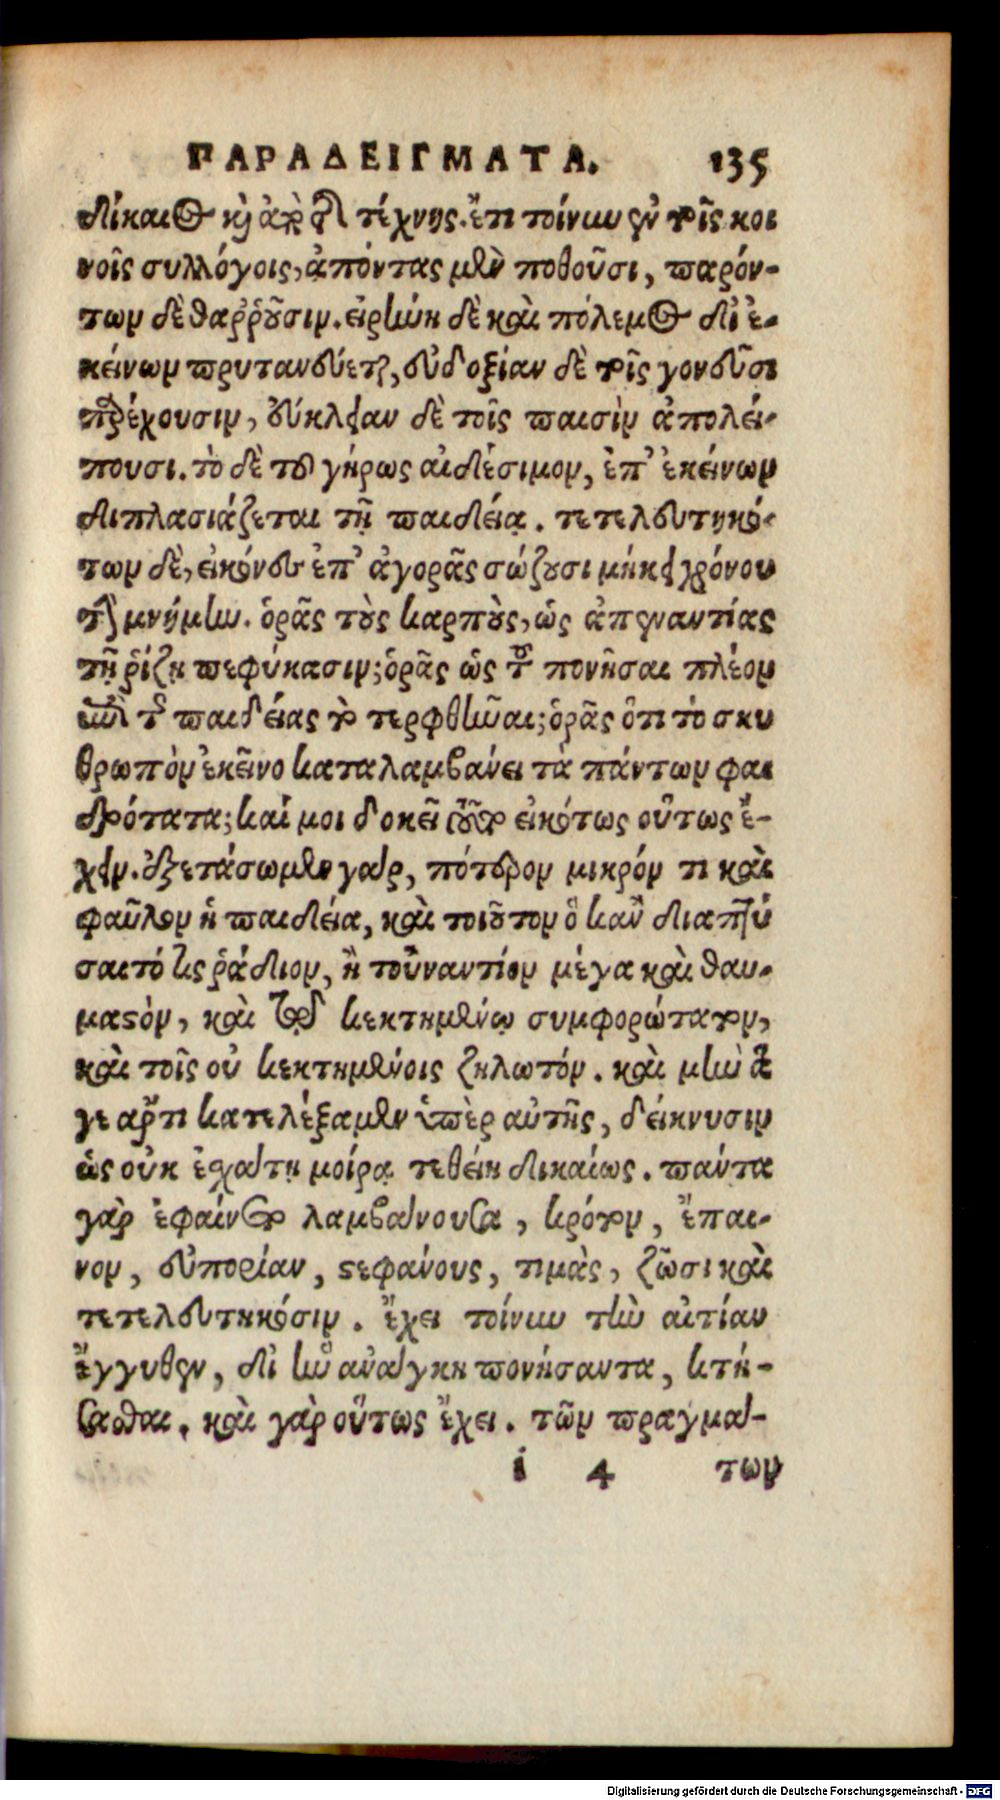 ΠΑΡΑΔΕΙΓΜΑΤΑ. 135
δίκαιος κỳ ἀρχὴ τέχνης. ἔτι τοίνυν ἐν τοῖς κοι
νοῖς συλλόγοις, ἀπόντας μὲν ποθοῦσι, παρόν-
των δὲ θαῤῥοῦσιν. εἰρήνη δὲ καὶ πόλεμος δι' ἐ-
κείνων πρυτανεύεται, εὐδοξίαν δὲ τοῖς γονεῦσι
παρέχουσιν, εὔκλειαν δὲ τοῖς παισὶν ἀπολεί-
πουσι. τὸ δὲ τοῦ γήρως αἰδέσιμον, ἐπ' ἐκείνων
διπλασιάζεται τῇ παιδείᾳ. τετελευτηκό-
των δὲ, εἰκόνες ἐπ' ἀγορᾶς σώζουσι μήκει χρόνου
τὴν μνήμην. ὁρᾷς τοὺς καρποὺς, ὡς ἀπεναντίας
τῇ ῥίζῃ πεφύκασιν; ὁρᾷς ὡς τοῦ πονῆσαι πλέον
ἐπὶ τῆς παιδείας τὸ τερφθῆναι; ὁρᾷς ὅτι τὸ σκυ
θρωπὸν ἐκεῖνο καταλαμβάνει τὰ πάντων φαι
δρότατα; καί μοι δοκεῖ τοῦτο εἰκότως οὕτως ἔ-
χειν. ἐξετάσωμεν γὰρ, πότερον μικρόν τι καὶ
φαῦλον ἡ παιδεία, καὶ τοιοῦτον ὃ κἂν διαπτύ
σαιτό τις ῥᾴδιον, ἢ τοὐναντίον μέγα καὶ θαυ-
μαστὸν, καὶ τῷ κεκτημένῳ συμφορώτατον,
καὶ τοῖς οὐ κεκτημένοις ζηλωτόν. καὶ μὴν ἅ
γε ἄρτι κατελέξαμεν ὑπὲρ αὐτῆς, δείκνυσιν
ὡς οὐκ ἐσχάτῃ μοίρᾳ τεθείη δικαίως. πάντα
γὰρ ἐφαίνετο λαμβάνουσα, κρότον, ἔπαι-
νον, εὐπορίαν, στεφάνους, τιμὰς, ζῶσι καὶ
τετελευτηκόσιν. ἔχει τοίνυν τὴν αἰτίαν
ἔγγυθεν, δι' ἣν ἀνάγκη πονήσαντα, κτή-
σασθαι. καὶ γὰρ οὕτως ἔχει. τῶν πραγμά-
i 4 των
Digitalisierung gefördert durch die Deutsche Forschungsgemeinschaft - DFG